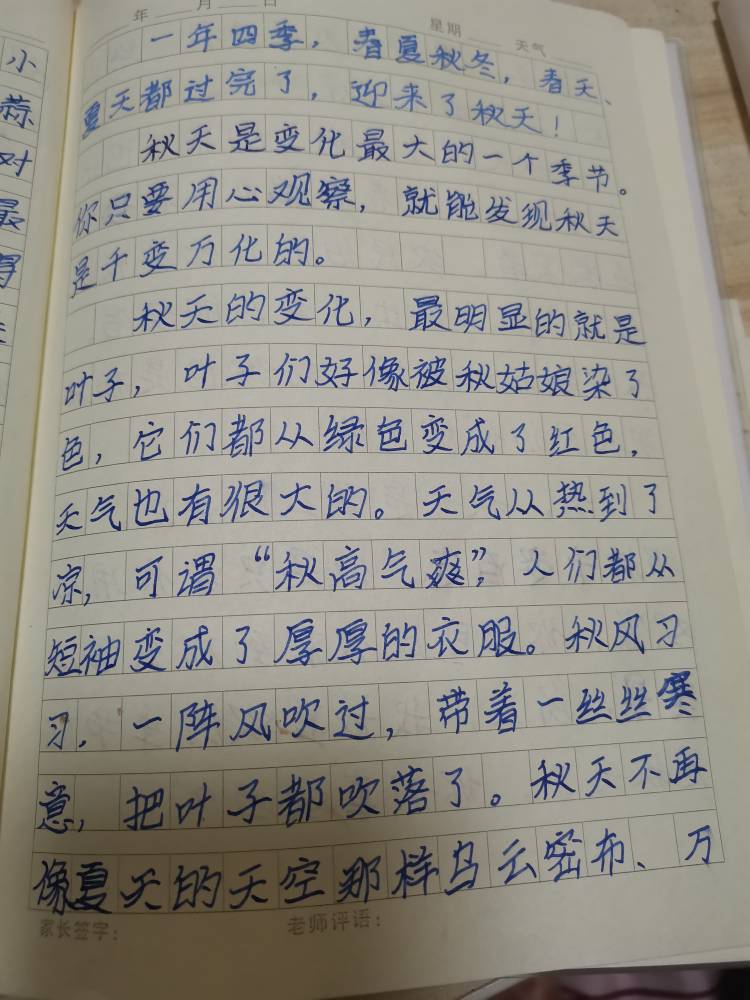 年 月 日 星期 天气
一年四季，春夏秋冬，春天、
夏天都过完了，迎来了秋天！
秋天是变化最大的一个季节。
你只要用心观察，就能发现秋天
是千变万化的。
秋天的变化，最明显的就是
叶子，叶子们好像被秋姑娘染了
色，它们都从绿色变成了红色，
天气也有很大的。天气从热到了
凉，可谓“秋高气爽”，人们都从
短袖变成了厚厚的衣服。秋风习
习，一阵风吹过，带着一丝丝寒
意，把叶子都吹落了。秋天不再
像夏天的天空那样乌云密布、万
家长签字： 老师评语：
小
蒜
对
最
得